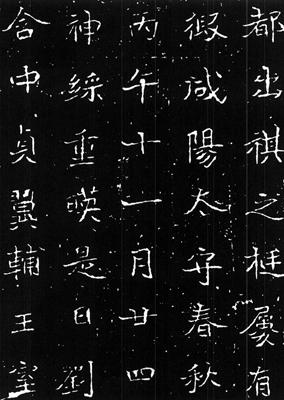 都出祺之挺有
假咸陽太守春秋
丙午十一月廿四
神綵重暎是曰劉
含中貞翼輔王室